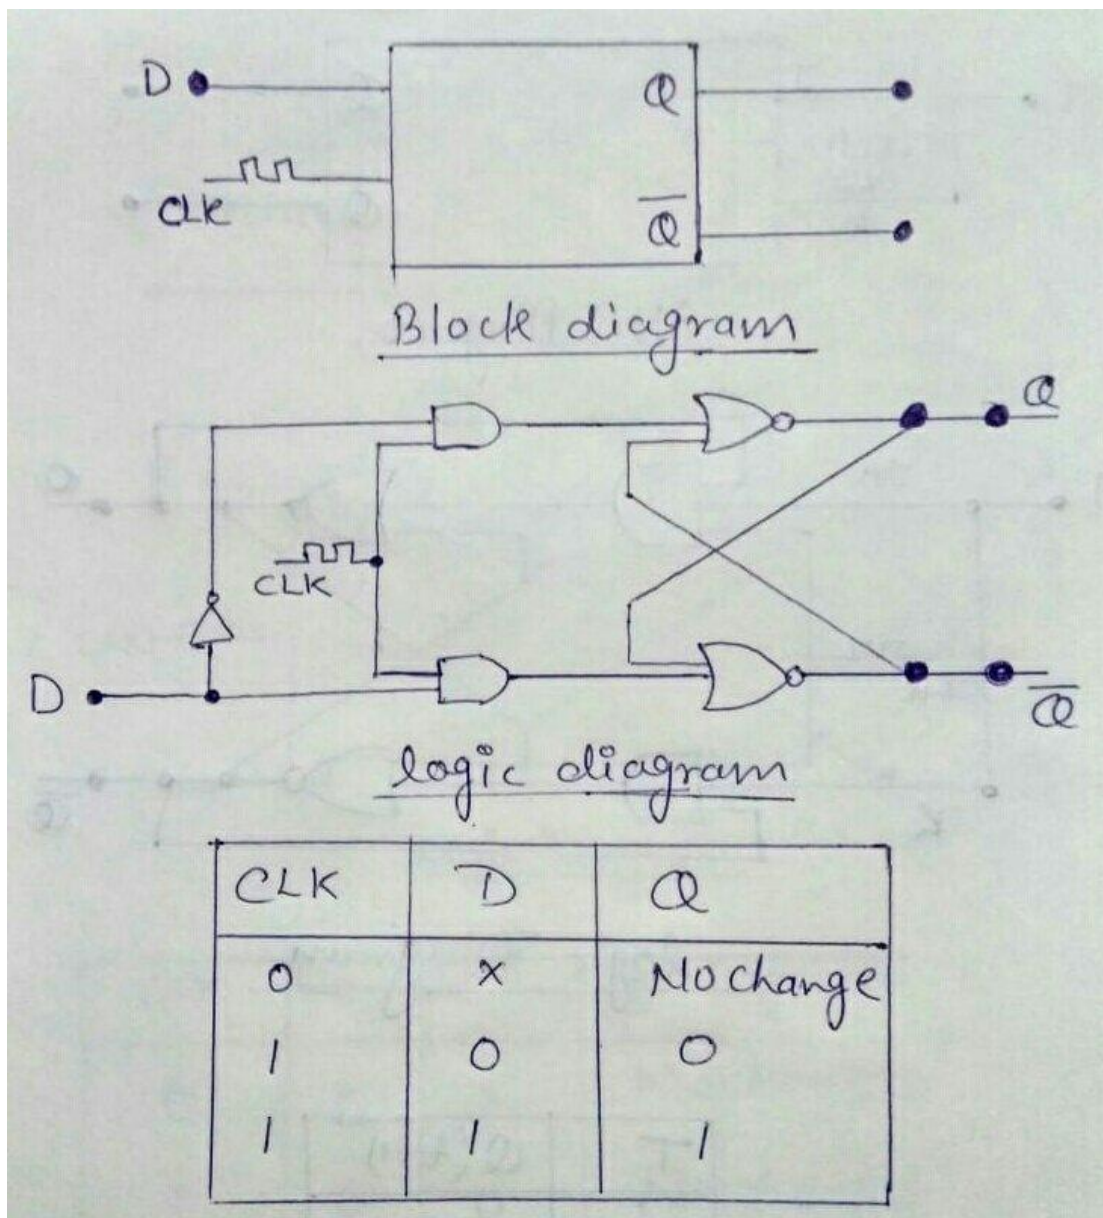 D
Q
CLK
Q̅
Block diagram
Q
CLK
D
Q̅
logic diagram
CLK D Q
0 x No change
1 0 0
1 1 1